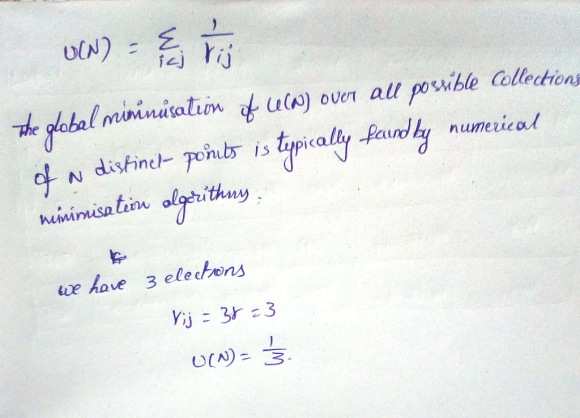 U(N) = Σ i<j 1/rij
The global minimisation of U(N) over all possible Collections
of N distinct points is typically found by numerical
minimisation algorithms.
we have 3 electrons
rij = 3r = 3
U(N) = 1/3.